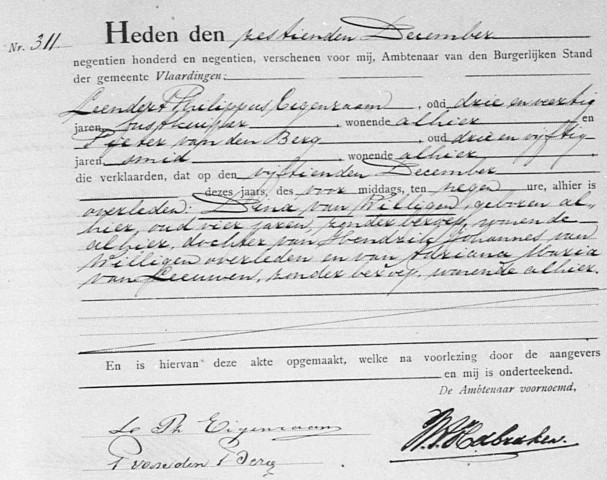 Nr. 311. Heden den zestienden December
negentien honderd en negentien, verschenen voor mij, Ambtenaar van den Burgerlijken Stand
der gemeente Vlaardingen:
Leendert Philippus Eigenraam, oud drie en veertig
jaren, wonende alhier en
Pieter van den Berg, oud drie en vijftig
jaren, smid, wonende alhier,
die verklaarden, dat op den vijftienden December
dezes jaars, des voor middags, ten negen ure, alhier is
overleden: Dina van Willigen, geboren al-
hier, oud vier jaren, zonder beroep, wonende
alhier, dochter van Hendrik Johannes van
Willigen overleden en van Adriana Maria
van Leeuwen, zonder beroep, wonende alhier.
En is hiervan deze akte opgemaakt, welke na voorlezing door de aangevers
en mij is onderteekend.
De Ambtenaar voornoemd,
L. Ph. Eigenraam
P van den Berg